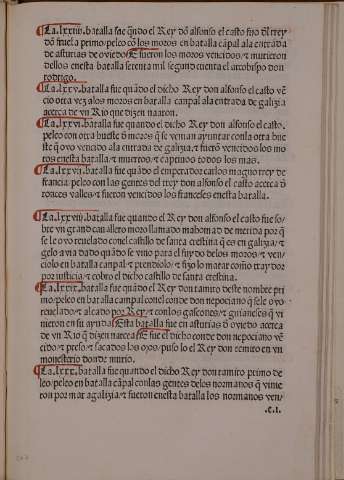 La.lxxiiij.batalla fue qñdo el Rey dõ alfonso el casto fijo dl rey
dõ fruela primo/peleo cõ los moros en batalla cãpal ala entrada
de asturias de ouiedo/ E fueron los moros vencidos/ ⁊ murieron
dellos enesta batalla setenta mil segund cuenta el arçobispo don
rodrigo.
La.lxxv.batalla fue quãdo el dicho Rey don alfonso el casto vẽ
cio otra vez alos moros en batalla canpal ala entrada de galizia
acerca de vn Rio que dizen naaron.
La.lxxvi.batalla fue quando el dicho Rey don alfonso el casto.
peleo con otra hueste d̃ moros q̃ se venian ayuntar conla otra hue
ste q̃ ouo vencido ala entrada de galizia/⁊ fuerõ vencidos los mo
ros enesta batalla/⁊ muertos/ ⁊ captiuos todos los mas.
La.lxxvij.batalla fue quãdo el emperador carlos magno rrey de
francia peleo con las gentes del rrey don alfonso el casto acerca d̃
ronces valles/⁊ fueron vencidos los franceses enesta batalla.
La.lxxviij.batalla fue quando el Rey don alfonso el casto fue so/
bre vn grand cauallero moro llamado mahomad de merida por q̃
se le ouo reuelado conel castillo de santa crestina q̃ es en galizia/⁊
gelo auia dado quãdo se vino para el fuydo delos moros/⁊ ven/
ciolo en batalla canpal ⁊ prendiolo/⁊ fizo lo matar como traydor
por justicia/⁊ cobro el dicho castillo de santa crestina.
La.lxxix.batalla fue quãdo el Rey don ramiro deste nombre pri
mo/peleo en batalla campal conel conde don nepociano q̃ sele ouo
reuelado/⁊ alçado por Rey/⁊ conlos gascones/⁊ guianeses q̃ vi
nieron en su ayuda/ Esta batalla fue en asturias d̃ ouiedo acerca
de vn Rio q̃ dizen narcea/ E fue el dicho conde don nepociano vẽ
cido/⁊ preso/⁊ sacados los ojos/puso lo el Rey don remiro en vn
monesterio donde murio.
La.lxxx.batalla fue quando el dicho Rey don ramiro primo de
leo/peleo en batalla cãpal conlas gentes delos normanos q̃ vinie
ron por mar a galizia/⁊ fueron enesta batalla los normanos ven/
.c.i.